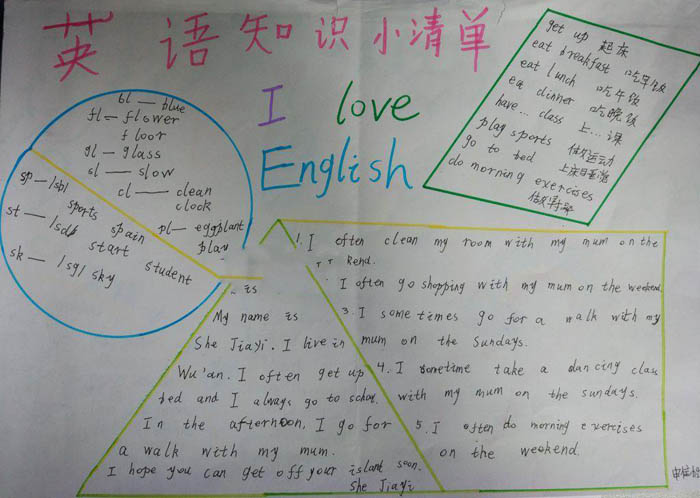 英语知识小清单
I love
English
get up 起床
eat breakfast 吃早饭
eat lunch 吃午饭
ea dinner 吃晚饭
have... class 上...课
play sports 做运动
go to bed 上床睡觉
do morning exercises
bl — blue
fl — flower
floor
gl — glass
sl — slow
cl — clean
clock
pl — eggplant
play
sp — /sb/ sports
spain
st — /sd/ start
student
sk — /sg/ sky
is
My name is
She Jiayi. I live in
Wu'an. I often get up
bed and I always go to school.
In the afternoon, I go for
a walk with my mum.
I hope you can get off your island soon.
She Jiayi
1. I often clean my room with my mum on the
kend.
I often go shopping with my mum on the weekend.
3. I some times go for a walk with my
mum on the Sundays.
4. I sometime take a dancing class
with my mum on the sundays.
5. I often do morning exercises
on the weekend.